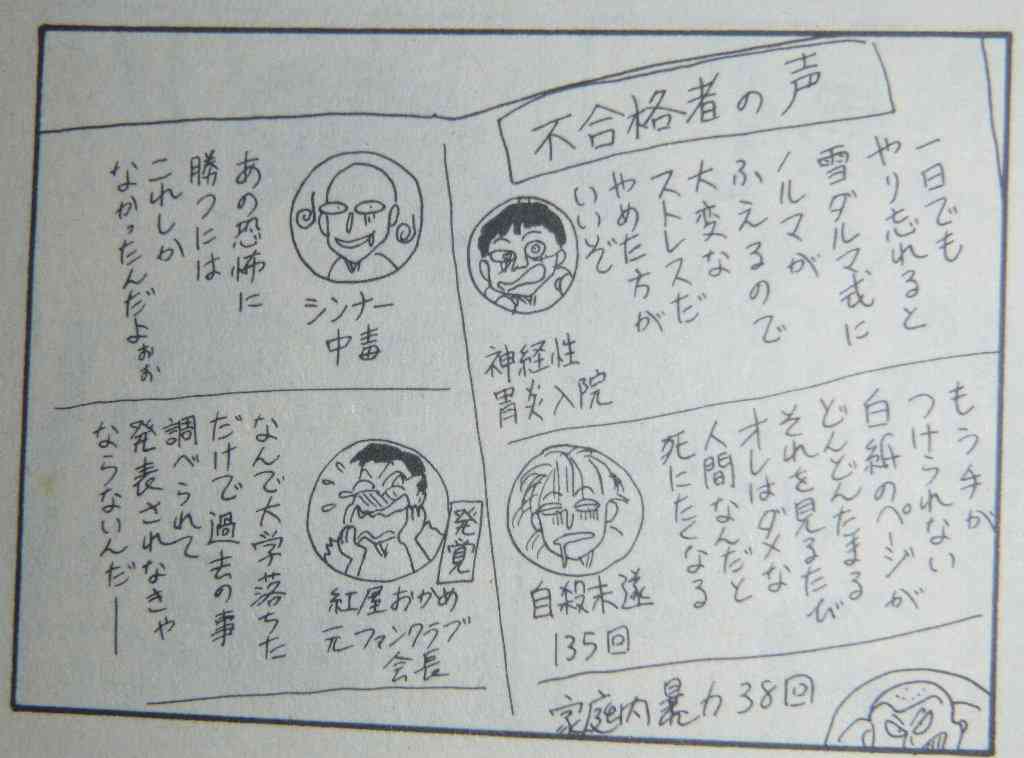 不合格者の声
一日でも
やり忘れると
雪ダルマ式に
ノルマが
ふえるので
大変な
ストレスだ
やめた方が
いいぞ
神経性
胃炎入院
もう手が
つけられない
白紙のページが
どんどんたまる
それを見るたび
オレはダメな
人間なんだと
死にたくなる
自殺未遂
135回
家庭内暴力38回
シンナー
中毒
あの恐怖に
勝つには
これしか
なかったんだよぉぉ
発覚
紅屋おかめ
元ファンクラブ
会長
なんで大学落ちた
だけで過去の事
調べられて
発表されなきゃ
ならないんだ——